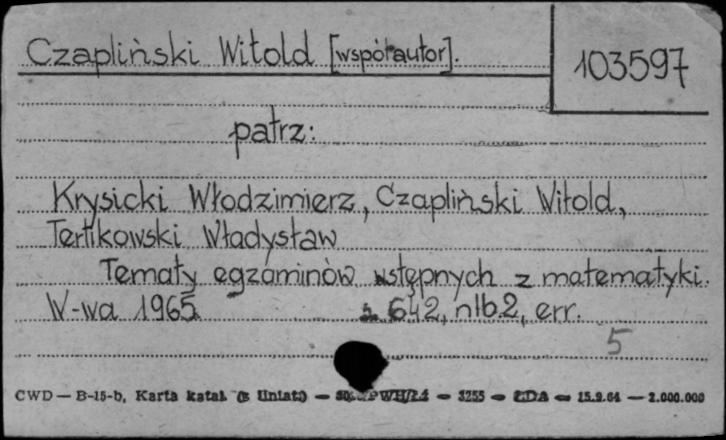 Czapliński Witold [współautor].
103597
patrz:
Krysicki Włodzimierz, Czapliński Witold,
Terlikowski Władysław
Tematy egzaminów wstępnych z matematyki.
W-wa 1965 s. 642, nlb.2, err.
5
CWD — B-15-b, Karta katal. — 3255 — ŁDA — 15.9.64 — 2.000.000